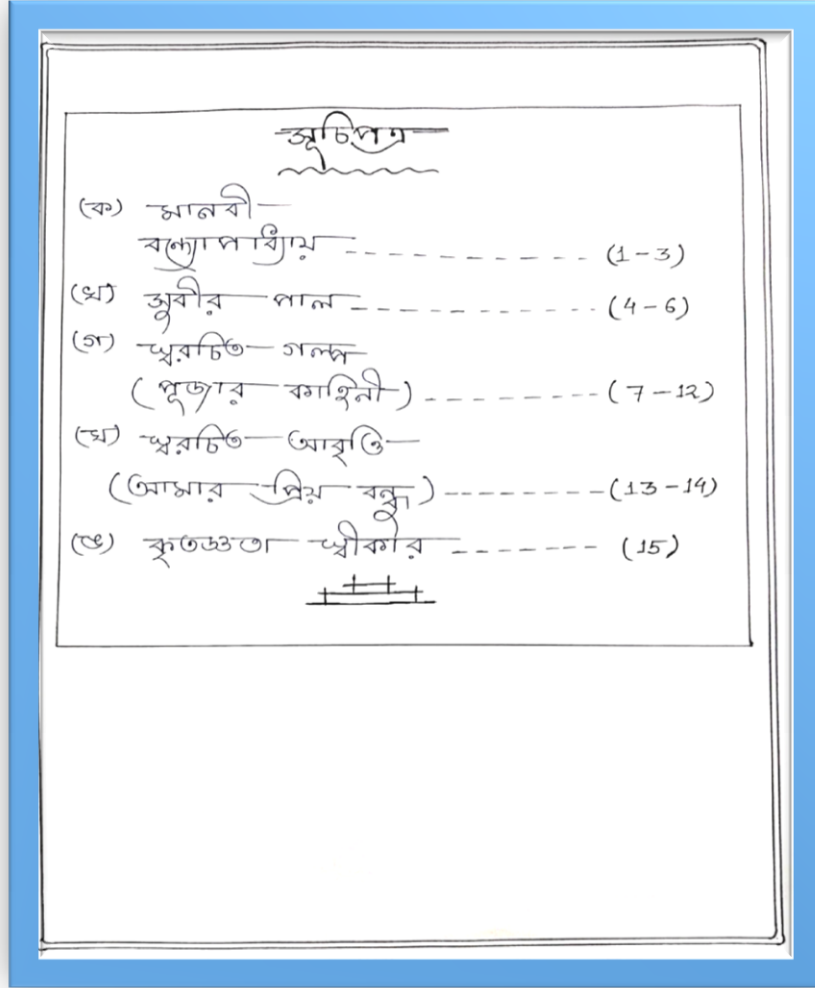 সূচিপত্র
(ক) মানবী
বন্দ্যোপাধ্যায় ------------ (1-3)
(খ) সুবীর পাল ------------ (4-6)
(গ) স্বরচিত গল্প
(পূজার কাহিনী) --------- (7-12)
(ঘ) স্বরচিত আবৃত্তি
(আমার প্রিয় বন্ধু) --------- (13-14)
(ঙ) কৃতজ্ঞতা স্বীকার ------- (15)